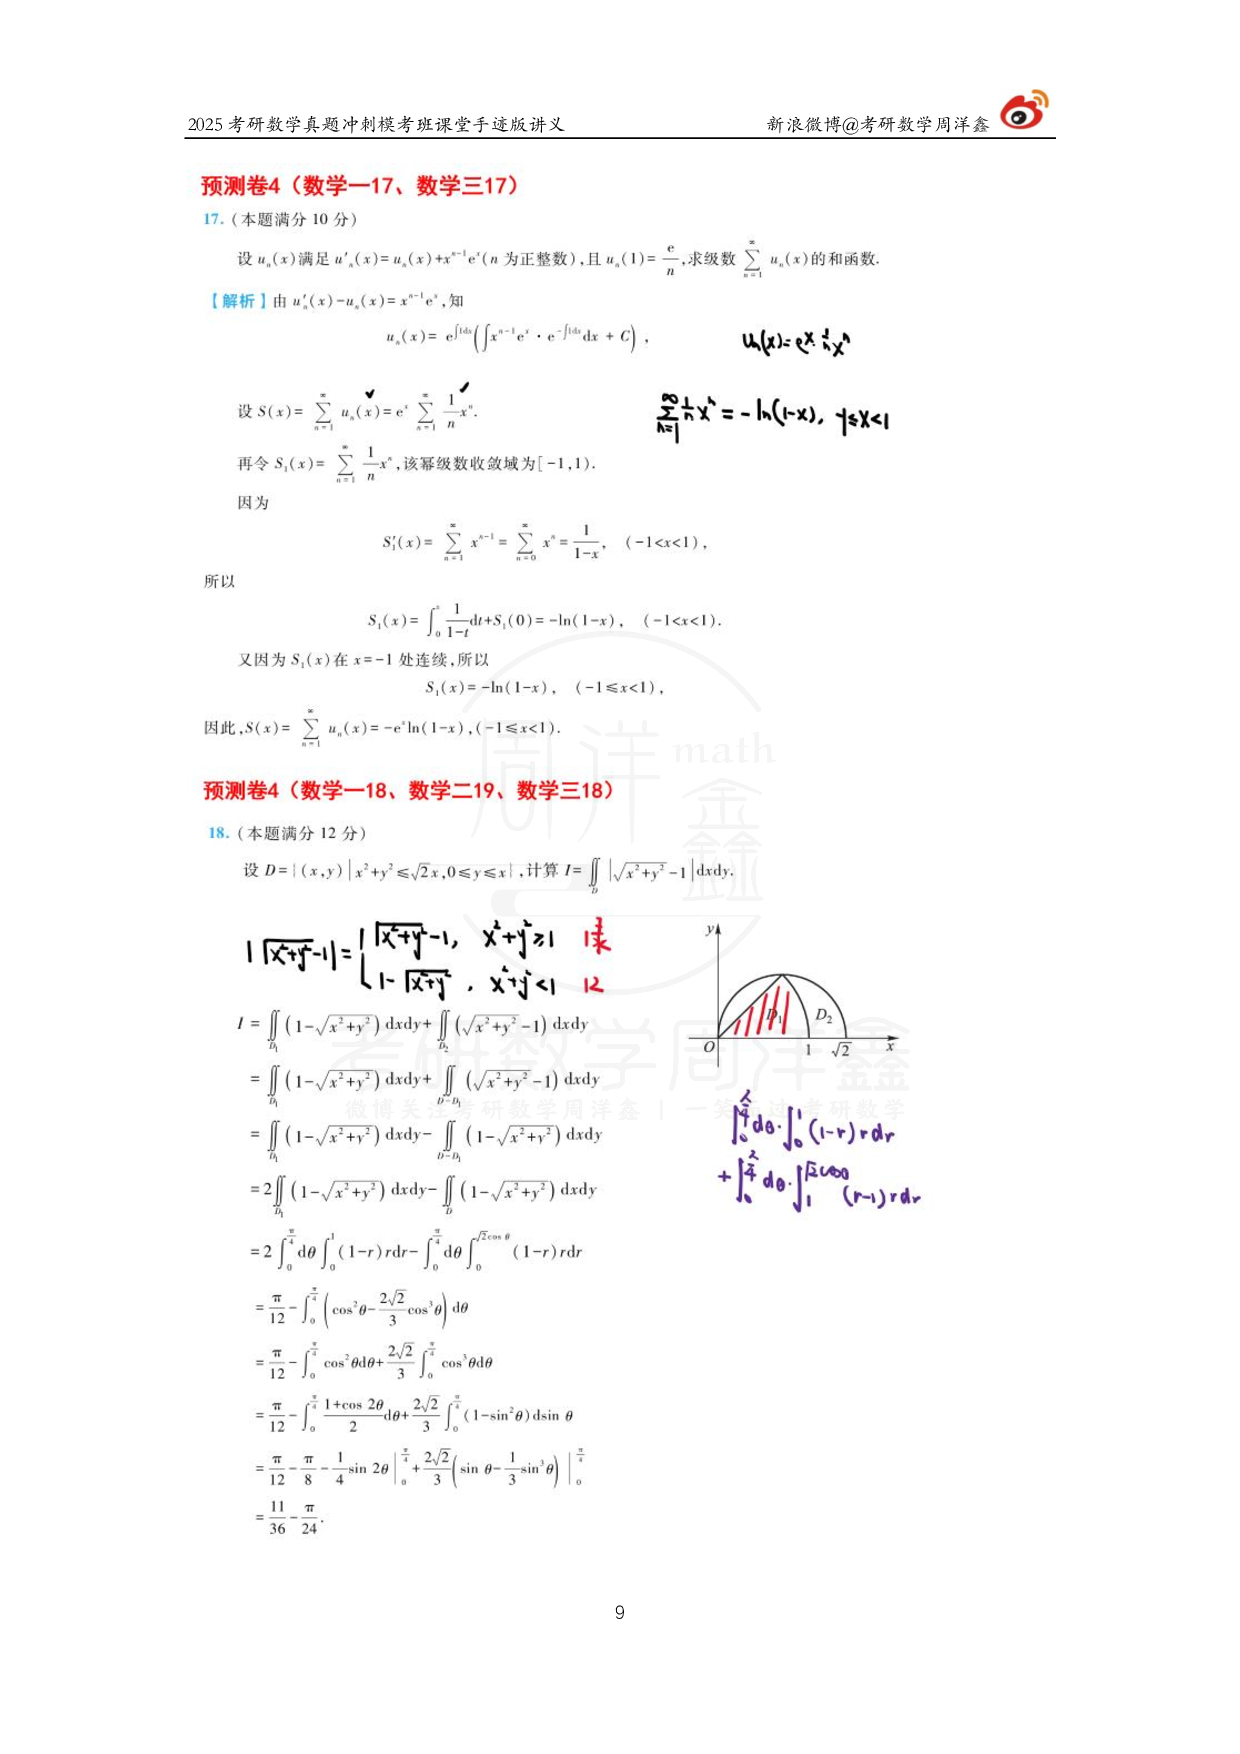 2025 考研数学真题冲刺模考班课堂手迹版讲义 新浪微博@考研数学周洋鑫
预测卷4（数学一17、数学三17）
17.（本题满分 10 分）
设 uₙ(x)满足 u′ₙ(x)=uₙ(x)+xⁿ⁻¹eˣ(n 为正整数),且 uₙ(1)= e/n,求级数 ∑_{n=1}^{∞} uₙ(x)的和函数.
【解析】由 u′ₙ(x)-uₙ(x)=xⁿ⁻¹eˣ,知
uₙ(x)= e^{∫1dx}(∫xⁿ⁻¹eˣ·e^{-∫1dx}dx + C),
uₙ(x)=eˣ·1/n xⁿ
设 S(x)= ∑_{n=1}^{∞} uₙ(x)=eˣ ∑_{n=1}^{∞} 1/n xⁿ.
∑_{n=1}^{∞} 1/n xⁿ = -ln(1-x), -1≤x<1
再令 S₁(x)= ∑_{n=1}^{∞} 1/n xⁿ,该幂级数收敛域为[-1,1).
因为
S₁′(x)= ∑_{n=1}^{∞} xⁿ⁻¹= ∑_{n=0}^{∞} xⁿ= 1/(1-x), (-1<x<1),
所以
S₁(x)= ∫₀ˣ 1/(1-t)dt+S₁(0)=-ln(1-x), (-1<x<1).
又因为 S₁(x)在 x=-1 处连续,所以
S₁(x)=-ln(1-x), (-1≤x<1),
因此,S(x)= ∑_{n=1}^{∞} uₙ(x)=-eˣln(1-x),(-1≤x<1).
周洋鑫 math
预测卷4（数学一18、数学二19、数学三18）
18.（本题满分 12 分）
设 D={(x,y)|x²+y²≤√2x,0≤y≤x},计算 I=∬_D |√(x²+y²)-1|dxdy.
|√(x²+y²)-1|={√(x²+y²)-1, x²+y²≥1
1-√(x²+y²), x²+y²<1
y
D₁ D₂
O 1 √2 x
I = ∬_{D₁}(1-√(x²+y²))dxdy+∬_{D₂}(√(x²+y²)-1)dxdy
考研数学周洋鑫
= ∬_{D₁}(1-√(x²+y²))dxdy+∬_{D-D₁}(√(x²+y²)-1)dxdy
微博关注考研数学周洋鑫 | 一笑而过考研数学
= ∬_{D₁}(1-√(x²+y²))dxdy-∬_{D-D₁}(1-√(x²+y²))dxdy
∫₀^{π/4}dθ·∫₀¹(1-r)rdr
= 2∬_{D₁}(1-√(x²+y²))dxdy-∬_D(1-√(x²+y²))dxdy
+∫₀^{π/4}dθ·∫₁^{√2cosθ}(r-1)rdr
= 2∫₀^{π/4}dθ∫₀¹(1-r)rdr-∫₀^{π/4}dθ∫₀^{√2cosθ}(1-r)rdr
= π/12-∫₀^{π/4}(cos²θ-2√2/3 cos³θ)dθ
= π/12-∫₀^{π/4}cos²θdθ+2√2/3∫₀^{π/4}cos³θdθ
= π/12-∫₀^{π/4}(1+cos 2θ)/2 dθ+2√2/3∫₀^{π/4}(1-sin²θ)dsin θ
= π/12-π/8-1/4 sin 2θ|₀^{π/4}+2√2/3(sin θ-1/3 sin³θ)|₀^{π/4}
= 11/36-π/24.
9